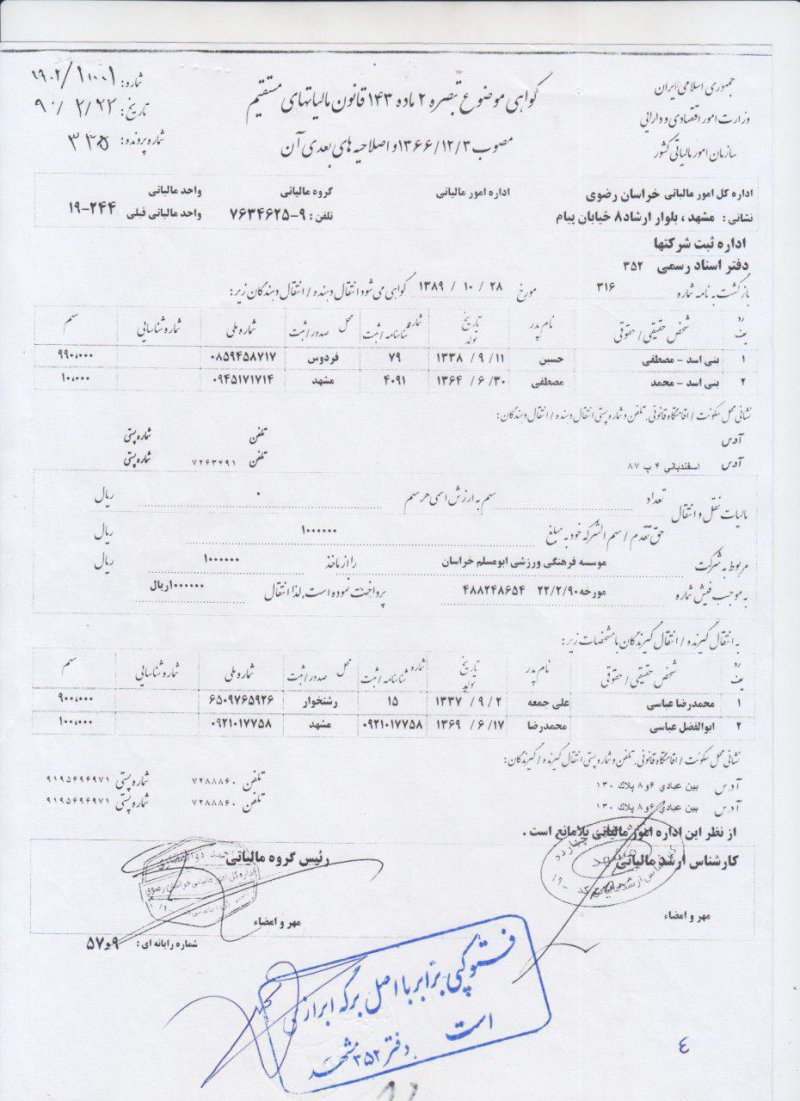 جمهوری اسلامی ایران
وزارت امور اقتصادی و دارایی
سازمان امور مالیاتی کشور
گواهی موضوع تبصره ۲ ماده ۱۴۳ قانون مالیاتهای مستقیم
مصوب ۱۳۶۶/۱۲/۳ و اصلاحیه های بعدی آن
شماره:
تاریخ: ۹۰/۲/۲۲
شماره پرونده: ۳۳۵
اداره کل امور مالیاتی خراسان رضوی اداره امور مالیاتی گروه مالیاتی واحد مالیاتی
نشانی: مشهد، بلوار ارشاد۸ خیابان پیام تلفن: ۹-۷۶۳۴۶۲۵ واحد مالیاتی قبلی ۲۴۴-۱۹
اداره ثبت شرکتها
دفتر اسناد رسمی ۳۵۲
بازگشت به نامه شماره ۳۱۶ مورخ ۲۸ / ۱۰ / ۱۳۸۹ گواهی می شود انتقال دهنده / انتقال دهندگان زیر:
ردیف شخص حقیقی / حقوقی نام پدر تاریخ تولد شماره شناسنامه / ثبت محل صدور / ثبت شماره ملی شماره شناسایی سهم
۱ بنی اسد - مصطفی حسین ۱۱ / ۹ / ۱۳۳۸ ۷۹ فردوس ۰۸۵۹۴۵۸۷۱۷ ۹۹۰،۰۰۰
۲ بنی اسد - محمد مصطفی ۳۰ / ۶ / ۱۳۶۴ ۴۰۹۱ مشهد ۰۹۴۵۱۷۱۷۱۴ ۱۰،۰۰۰
نشانی محل سکونت / اقامتگاه قانونی، تلفن و شماره پستی انتقال دهنده / انتقال دهندگان:
آدرس تلفن شماره پستی
آدرس اسفندیانی ۴ پ ۸۷ تلفن ۷۲۶۳۴۹۱ شماره پستی
مالیات نقل و انتقال تعداد سهم به ارزش اسمی هر سهم ۰ ریال
حق تقدم / سهم الشرکه خود به مبلغ ۱۰۰۰۰۰۰ ریال
مربوط به شرکت موسسه فرهنگی ورزشی ابومسلم خراسان را از ماخذ ۱۰۰۰۰۰۰ ریال
به موجب فیش شماره ۴۸۸۲۴۸۶۵۴ مورخه ۲۲/۲/۹۰ پرداخت نموده است، لذا انتقال ۱۰۰۰۰۰۰ریال
به انتقال گیرنده / انتقال گیرندگان با مشخصات زیر:
ردیف شخص حقیقی / حقوقی نام پدر تاریخ تولد شماره شناسنامه / ثبت محل صدور / ثبت شماره ملی شماره شناسایی سهم
۱ محمدرضا عباسی علی جمعه ۲ / ۹ / ۱۳۳۷ ۱۵ رشتخوار ۶۵۰۹۷۶۵۹۲۶ ۹۰۰،۰۰۰
۲ ابوالفضل عباسی محمدرضا ۱۷ / ۶ / ۱۳۶۹ ۰۹۲۱۰۱۷۷۵۸ مشهد ۰۹۲۱۰۱۷۷۵۸ ۱۰۰،۰۰۰
نشانی محل سکونت / اقامتگاه قانونی، تلفن و شماره پستی انتقال گیرنده / گیرندگان:
آدرس بین عبادی ۶و۸ پلاک ۱۳۰ تلفن ۷۲۸۸۸۶۰ شماره پستی ۹۱۹۵۶۹۶۹۷۱
آدرس بین عبادی ۶و۸ پلاک ۱۳۰ تلفن ۷۲۸۸۸۶۰ شماره پستی ۹۱۹۵۶۹۶۹۷۱
از نظر این اداره امور مالیاتی بلامانع است .
کارشناس ارشد مالیاتی رئیس گروه مالیاتی
اداره کل امور مالیاتی خراسان رضوی
مهر و امضاء مهر و امضاء
شماره رایانه ای :
فتوکپی برابر با اصل برگه ابرازی
است
دفتر ۳۵۲ مشهد
۴